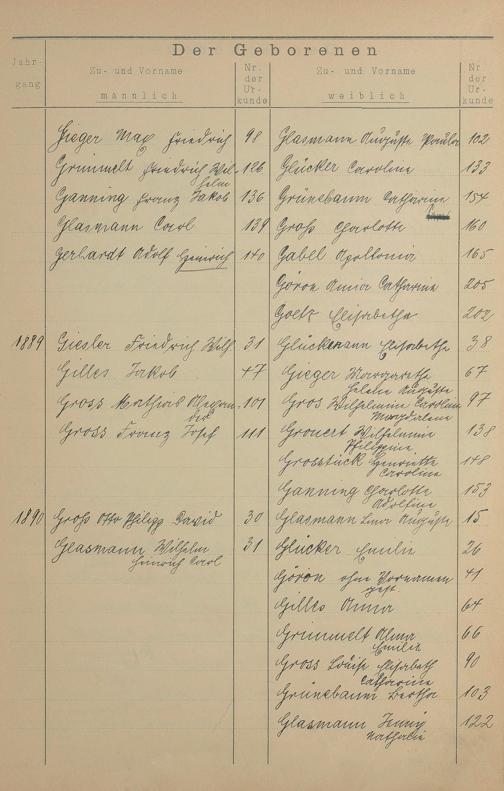 Der Geborenen
Jahr-
gang
Zu- und Vorname
männlich
Nr.
der
Ur-
kunde
Zu- und Vorname
weiblich
Nr.
der
Ur-
kunde
Gieger Max Friedrich 98 Glasmann Auguste Paula 102
Grimmelt Friedrich Wil- 126 Glücker Caroline 133
helm
Ganning Franz Jakob 136 Grünebaum Catharine 154
Glasmann Carl 139 Groß Charlotte 160
Gerhardt Adolf Heinrich 140 Gabel Apollonia 165
Göron Anna Catharine 205
Goetz Elisabetha 202
1889 Giesler Friedrich Wilh. 31 Glückmann Elisabetha 38
Gilles Jakob 47 Gieger Margaretha 67
Helene Auguste
Gross Mathias Alexan- 101 Gros Wilhelmine Caroline 97
der Magdalena
Gross Franz Josef 111 Gronert Wilhelmine 138
Philippine
Grosstück Henriette 148
Caroline
Ganning Charlotte 153
Adolfine
1890 Groß Otto Philipp David 30 Glasmann Lina Auguste 15
Glasmann Wilhelm 31 Glücker Emilie 26
Heinrich Carl
Göron ohne Vornamen 41
Gilles Anna 64
Grimmelt Alma 66
Emilie
Gross Louise Elisabeth 90
Catharine
Grünebaum Bertha 103
Glasmann Jenny 122
Nathalie